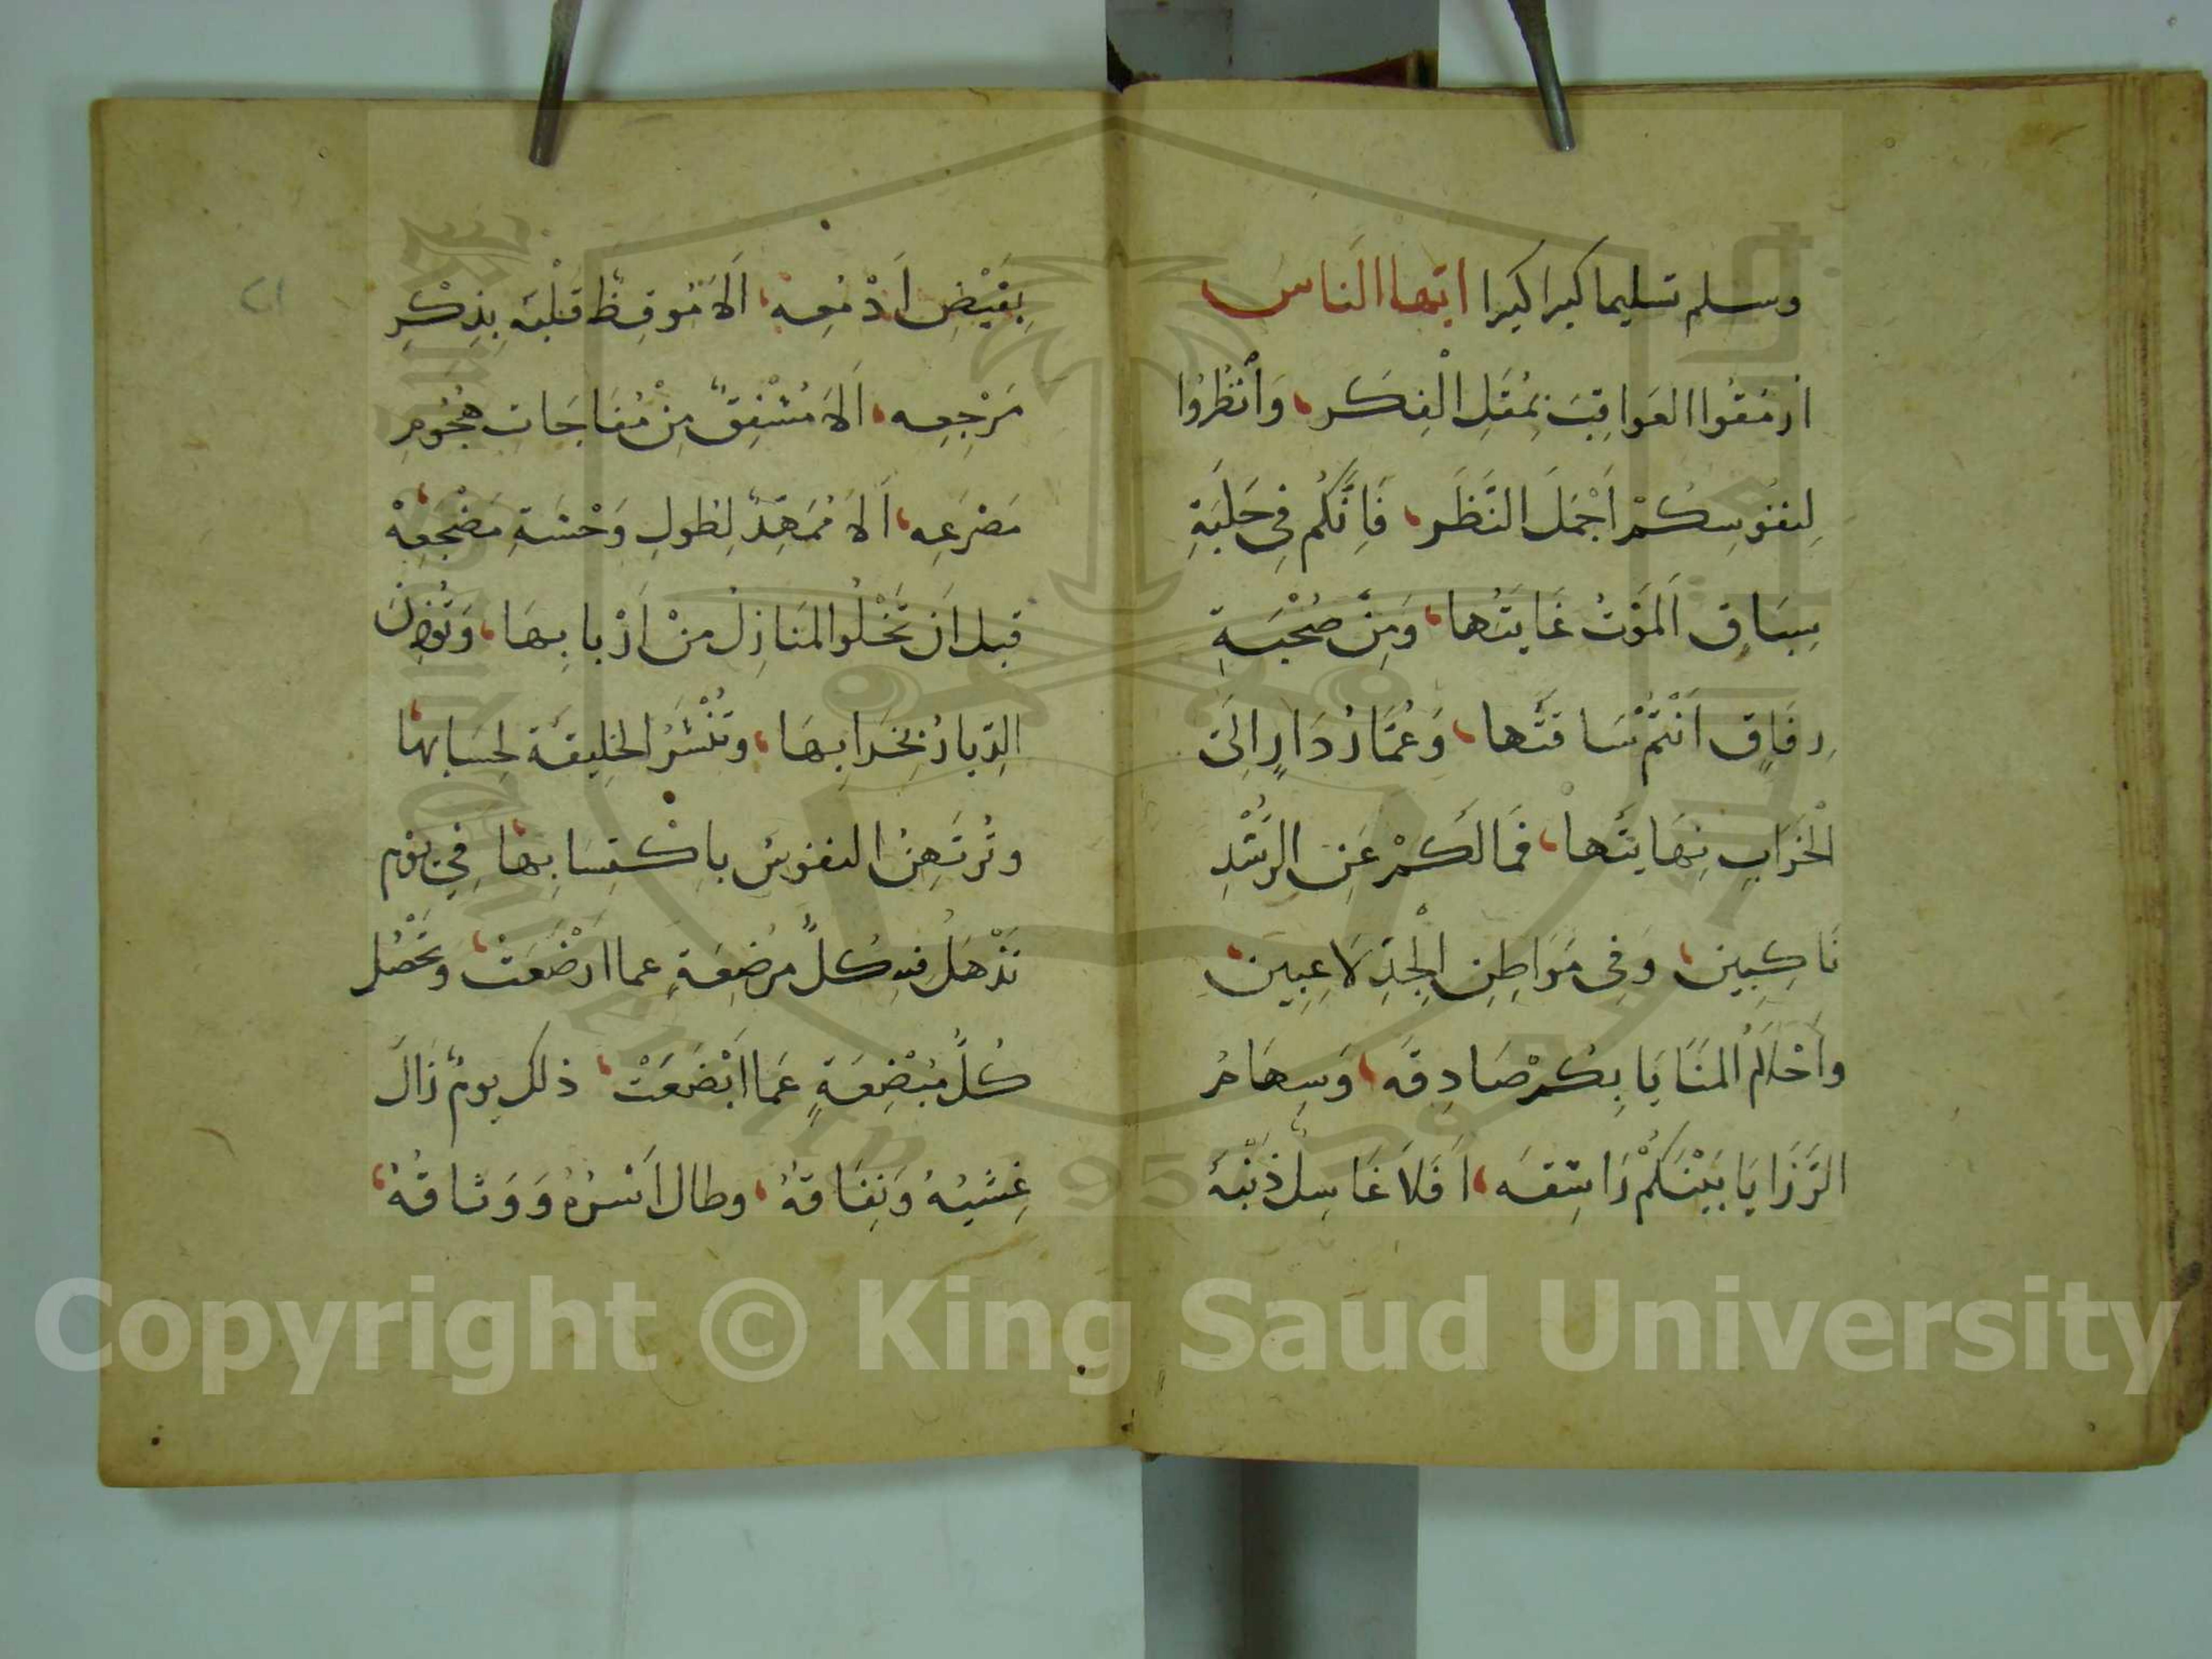 وسلم تسليما كبيرا كبيرا ايها الناس
اَرمُقُوا العَوَاقِبَ بِمُقَلِ الْفِكَر، وَاَنْظُرُوا
لِنفُوسِكُمْ اَجْمَلَ النَّظَر، فَاِنَّكُم فِي حَلْبَةِ
سِبَاقٍ اَلمَوْتُ غَايَتُها، وَمِنْ صُحْبَةِ
رِفَاقٍ اَنْتُمْ سَاقَتُها، وَعُمَّارُ دَارٍ اِلَى
الْخَرَابِ نِهَايَتُها، فَمَا لَكمْ عَنِ الرُّشْدِ
نَاكِبِين، وَفِي مَوَاطِنِ الْجِدِّ لَاعِبِين،
وَاَحْلَامُ المَنَايَا بِكُمْ صَادِقَه، وَسِهَامُ
الرَّزَايَا بَيْنَكُمْ رَاشِقَه، اَفَلاَ غَاسِلٌ ذَنْبَهُ
بِفَيْضِ اَدْمُعِه، اَلاَ مُوقِظٌ قَلْبَهُ بِذِكْرِ
مَرْجِعِه، اَلاَ مُشْفِقٌ مِنْ مُفَاجَات هُجُومِ
مَصْرَعِه، اَلاَ مُمَهِّدٌ لِطُولِ وَحْشَةِ مَضْجَعِهْ
قبل اَن تَخْلُوا المَنَازِلُ مِنْ اَرْبابِهَا، وَتُؤْذِنَ
الدِّيارُ بِخَرَابِهَا، وَتُنْشَرُ الخلِيقَة لِحسَابِهَا،
وتُرتَهِنُ النفوسُ بِاكْتِسَابِهَا، فِي يَوْم
تَذْهَلُ فيهِ كُلُّ مُرْضِعَةٍ عما ارْضَعَتْ، وَتَحْصُل
كُلُّ مُبْضِعَةٍ عَمَا اَبْضَعَتْ، ذلك يومٌ زَالَ
غِشيُهُ وَنِفَاقُهُ، وطال اَسْرُهُ وَوَثاقُهُ،
٢١
Copyright © King Saud University